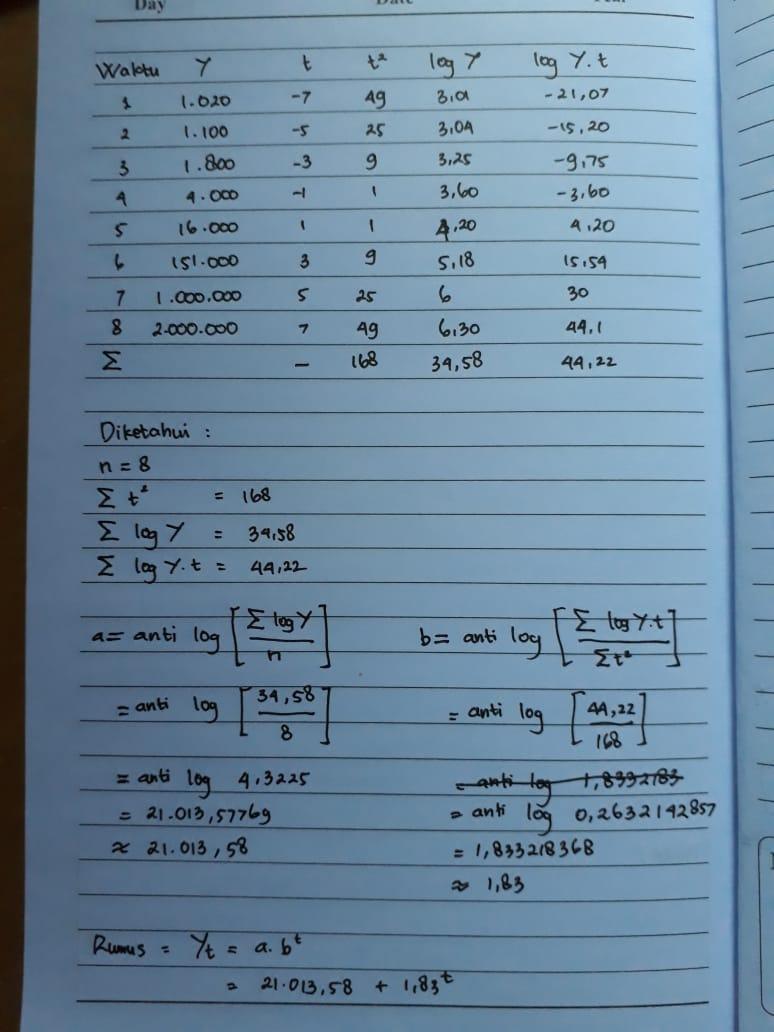 Day Date Year
Waktu Y t t² log Y log Y.t
1 1.020 -7 49 3,01 -21,07
2 1.100 -5 25 3,04 -15,20
3 1.800 -3 9 3,25 -9,75
4 4.000 -1 1 3,60 -3,60
5 16.000 1 1 4,20 4,20
6 151.000 3 9 5,18 15,54
7 1.000.000 5 25 6 30
8 2.000.000 7 49 6,30 44,1
Σ - 168 34,58 44,22
Diketahui :
n = 8
Σ t² = 168
Σ log Y = 34,58
Σ log Y.t = 44,22
a = anti log [Σ log Y / n] b = anti log [Σ log Y.t / Σt²]
= anti log [34,58 / 8] = anti log [44,22 / 168]
= anti log 4,3225 = anti log 1,8332183
= 21.013,57769 = anti log 0,2632142857
≈ 21.013,58 = 1,833218368
≈ 1,83
Rumus = Yt = a. b^t
= 21.013,58 + 1,83^t